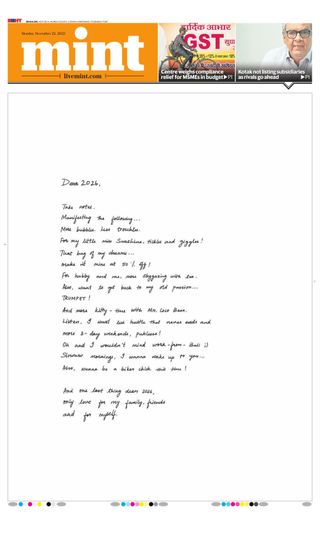 Monday, December 22, 2025
mint
livemint.com
हार्दिक आभार
GST
Centre weighs compliance
relief for MSMEs in budget▶P1
Kotak not listing subsidiaries
as rivals go ahead ▶P1
Dear 2026,
Take notes.
Manifesting the following...
More bubbles. Less troubles.
For my little miss Sunshine, tickles and giggles!
That bag of my dreams...
make it mine at 50% off!
For hubby and me, more vlogging with tea.
Also, want to get back to my old passion...
TRUMPET!
And more kitty-time with Mr. Coco Bean.
Listen, I want less hustle that never ends and
more 3-day weekends, puhleese!
Oh and I wouldn't mind work-from-Bali :)
Slowww mornings, I wanna wake up to you...
Also, wanna be a biker chick this time!
And one last thing dear 2026,
only love for my family, friends
and for myself.